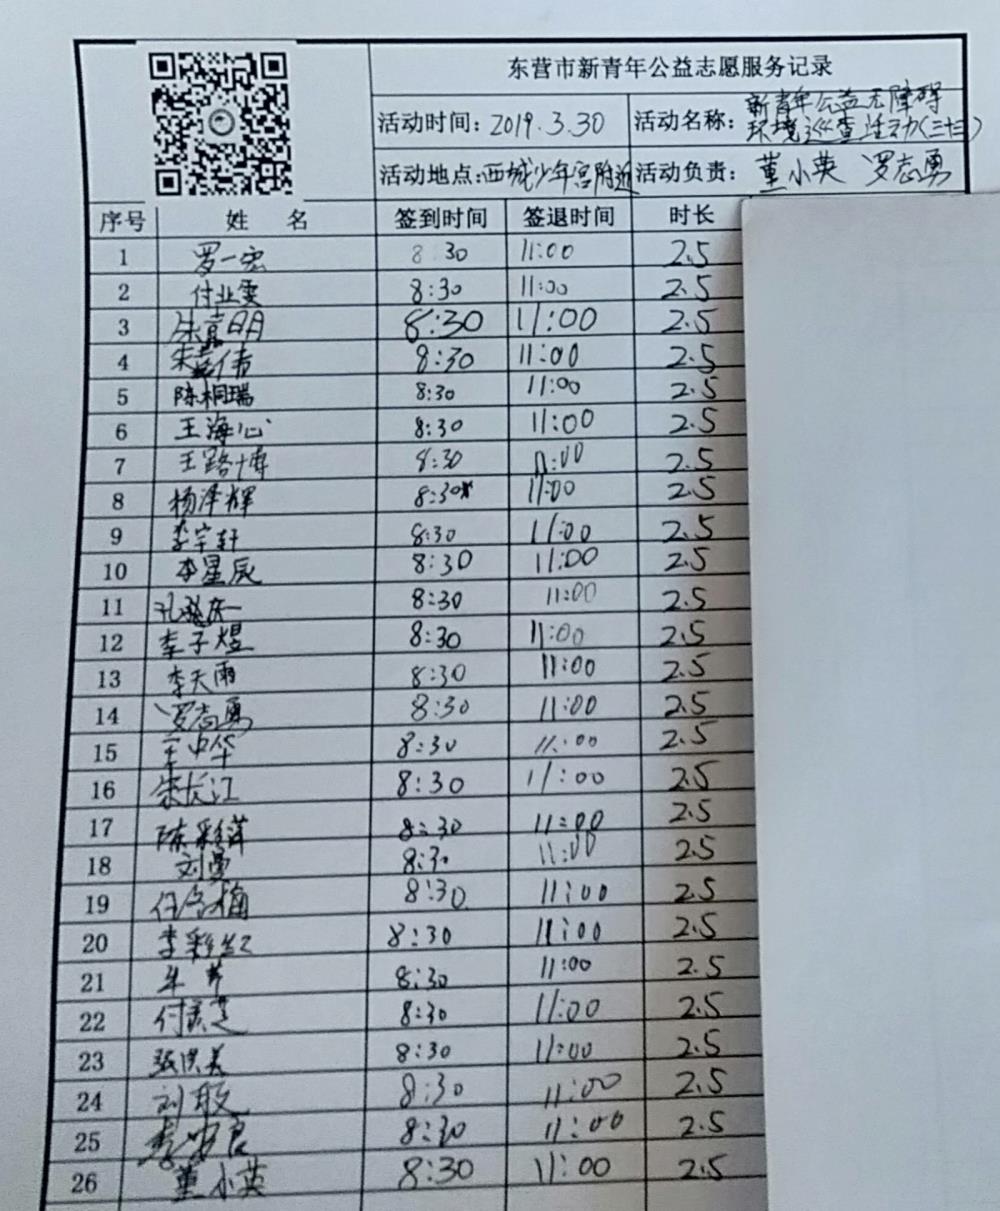 东营市新青年公益志愿服务记录
活动时间: 2019.3.30 活动名称: 新青年公益无障碍
环境巡查活动(三十三)
活动地点: 西城少年宫附近 活动负责: 董小英 罗志勇
序号 姓 名 签到时间 签退时间 时长
1 罗一宏 8:30 11:00 2.5
2 付业雯 8:30 11:00 2.5
3 朱嘉明 8:30 11:00 2.5
4 8:30 11:00 2.5
5 陈桐瑞 8:30 11:00 2.5
6 王海心 8:30 11:00 2.5
7 王路博 8:30 11:00 2.5
8 杨泽辉 8:30 11:00 2.5
9 李宇轩 8:30 11:00 2.5
10 李星辰 8:30 11:00 2.5
11 8:30 11:00 2.5
12 李子煜 8:30 11:00 2.5
13 李天雨 8:30 11:00 2.5
14 罗志勇 8:30 11:00 2.5
15 王中华 8:30 11:00 2.5
16 宋长江 8:30 11:00 2.5
17 陈彩萍 8:30 11:00 2.5
18 刘勇 8:30 11:00 2.5
19 8:30 11:00 2.5
20 李彩红 8:30 11:00 2.5
21 8:30 11:00 2.5
22 8:30 11:00 2.5
23 张洪美 8:30 11:00 2.5
24 刘敏 8:30 11:00 2.5
25 8:30 11:00 2.5
26 董小英 8:30 11:00 2.5